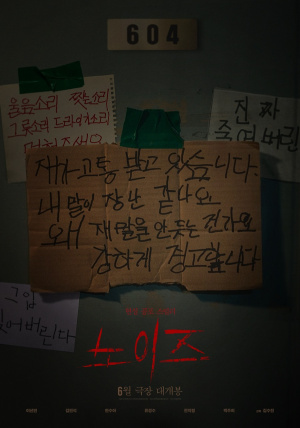 604
울음소리 찢는소리
그릇소리 드라이기소리
멈춰주세요
진짜
죽여버린
제가 고통 받고 있습니다.
내 말이 장난 같나요
왜 제 말을 안 듣는 건가요
강하게 경고합니다
그입
찢어버린다
노이즈
6월 극장 대개봉